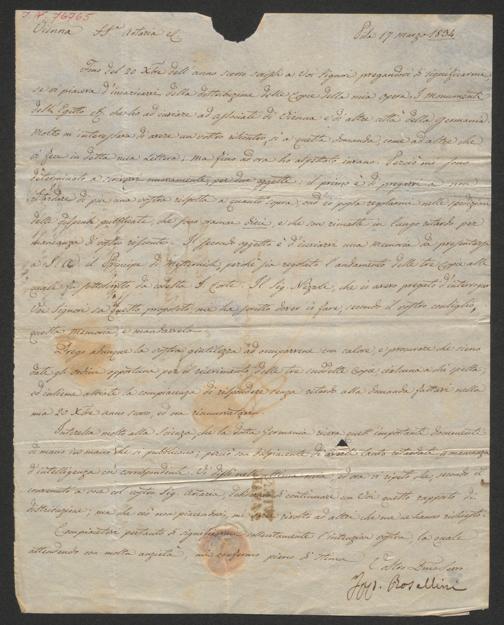 I.N. 76965
Vienna SSri Artaria e C.
Pisa 17 marzo 1834.
Fino del 20 Xbre dell'anno scorso scrissi a Voi Signori pregandovi di significarmi
se vi piaceva d'incaricarvi della distribuzione delle Copie della mia opera, I monumenti
dell'Egitto &c che ho ad inviare ad associati di Vienna e di altre città della Germania
Molto mi interessava di avere un vostro a questa domanda, come ad altre che
vi feci in detta mia Lettera; ma fino ad ora ho aspettato invano. Perciò mi sono
determinato a scrivervi nuovamente, per due oggetti: il primo è di pregarvi a non
ritardare di più una vostra risposta a quanto sopra, onde io possa regolarmi nelle spedizioni
delle dispense pubblicate che sono ormai dieci, e che son rimaste in lungo ritardo per
mancanza di vostro riscontro. Il secondo oggetto è d'inviarvi una memoria da presentarsi
a S. A. il Principe di Metternich, perchè sia regolato l'andamento delle tre copie alle
quali si è sottoscritto da codesta I. Corte. Il Sig. che io avevo pregato d'interporsi
Voi Signori su questo proposito, me ha scritto dover io fare, secondo il vostro consiglio,
questa memoria e mandarvela.
Prego adunque la vostra gentilezza ad occuparvene con calore, e procurare che sieno
date gli ordini opportuni per il ricevimento delle tre suddette Copie, ciascuna a chi spetta;
ed insieme abbiate la compiacenza di rispondere senza ritardo alla domanda fattavi nella
mia 20 Xbre anno scorso, ed ora rinnovatavi.
Interessa molto alla Scienza, che la dotta Germania riceva questi importanti documenti
di mano in mano che si pubblicano; perciò son dispiacente di tanto ritardo a mancanza
d'intelligenza coi corrispondenti. Vi dissi nella ultima mia, ed ora vi ripeto che, secondo il
convenuto a voce col vostro Sig. Artaria, di continuare con Voi questo rapporto di
distribuzione; ma che ciò non piacendovi, mi rivolto ad altri che me ne hanno richiesto.
Compiacetevi pertanto di significarmi l'intenzione vostra, la quale
attendendo con molta ansietà mi confermo pieno di stima
Vostro Devmo Servo
Ipp. Rosellini